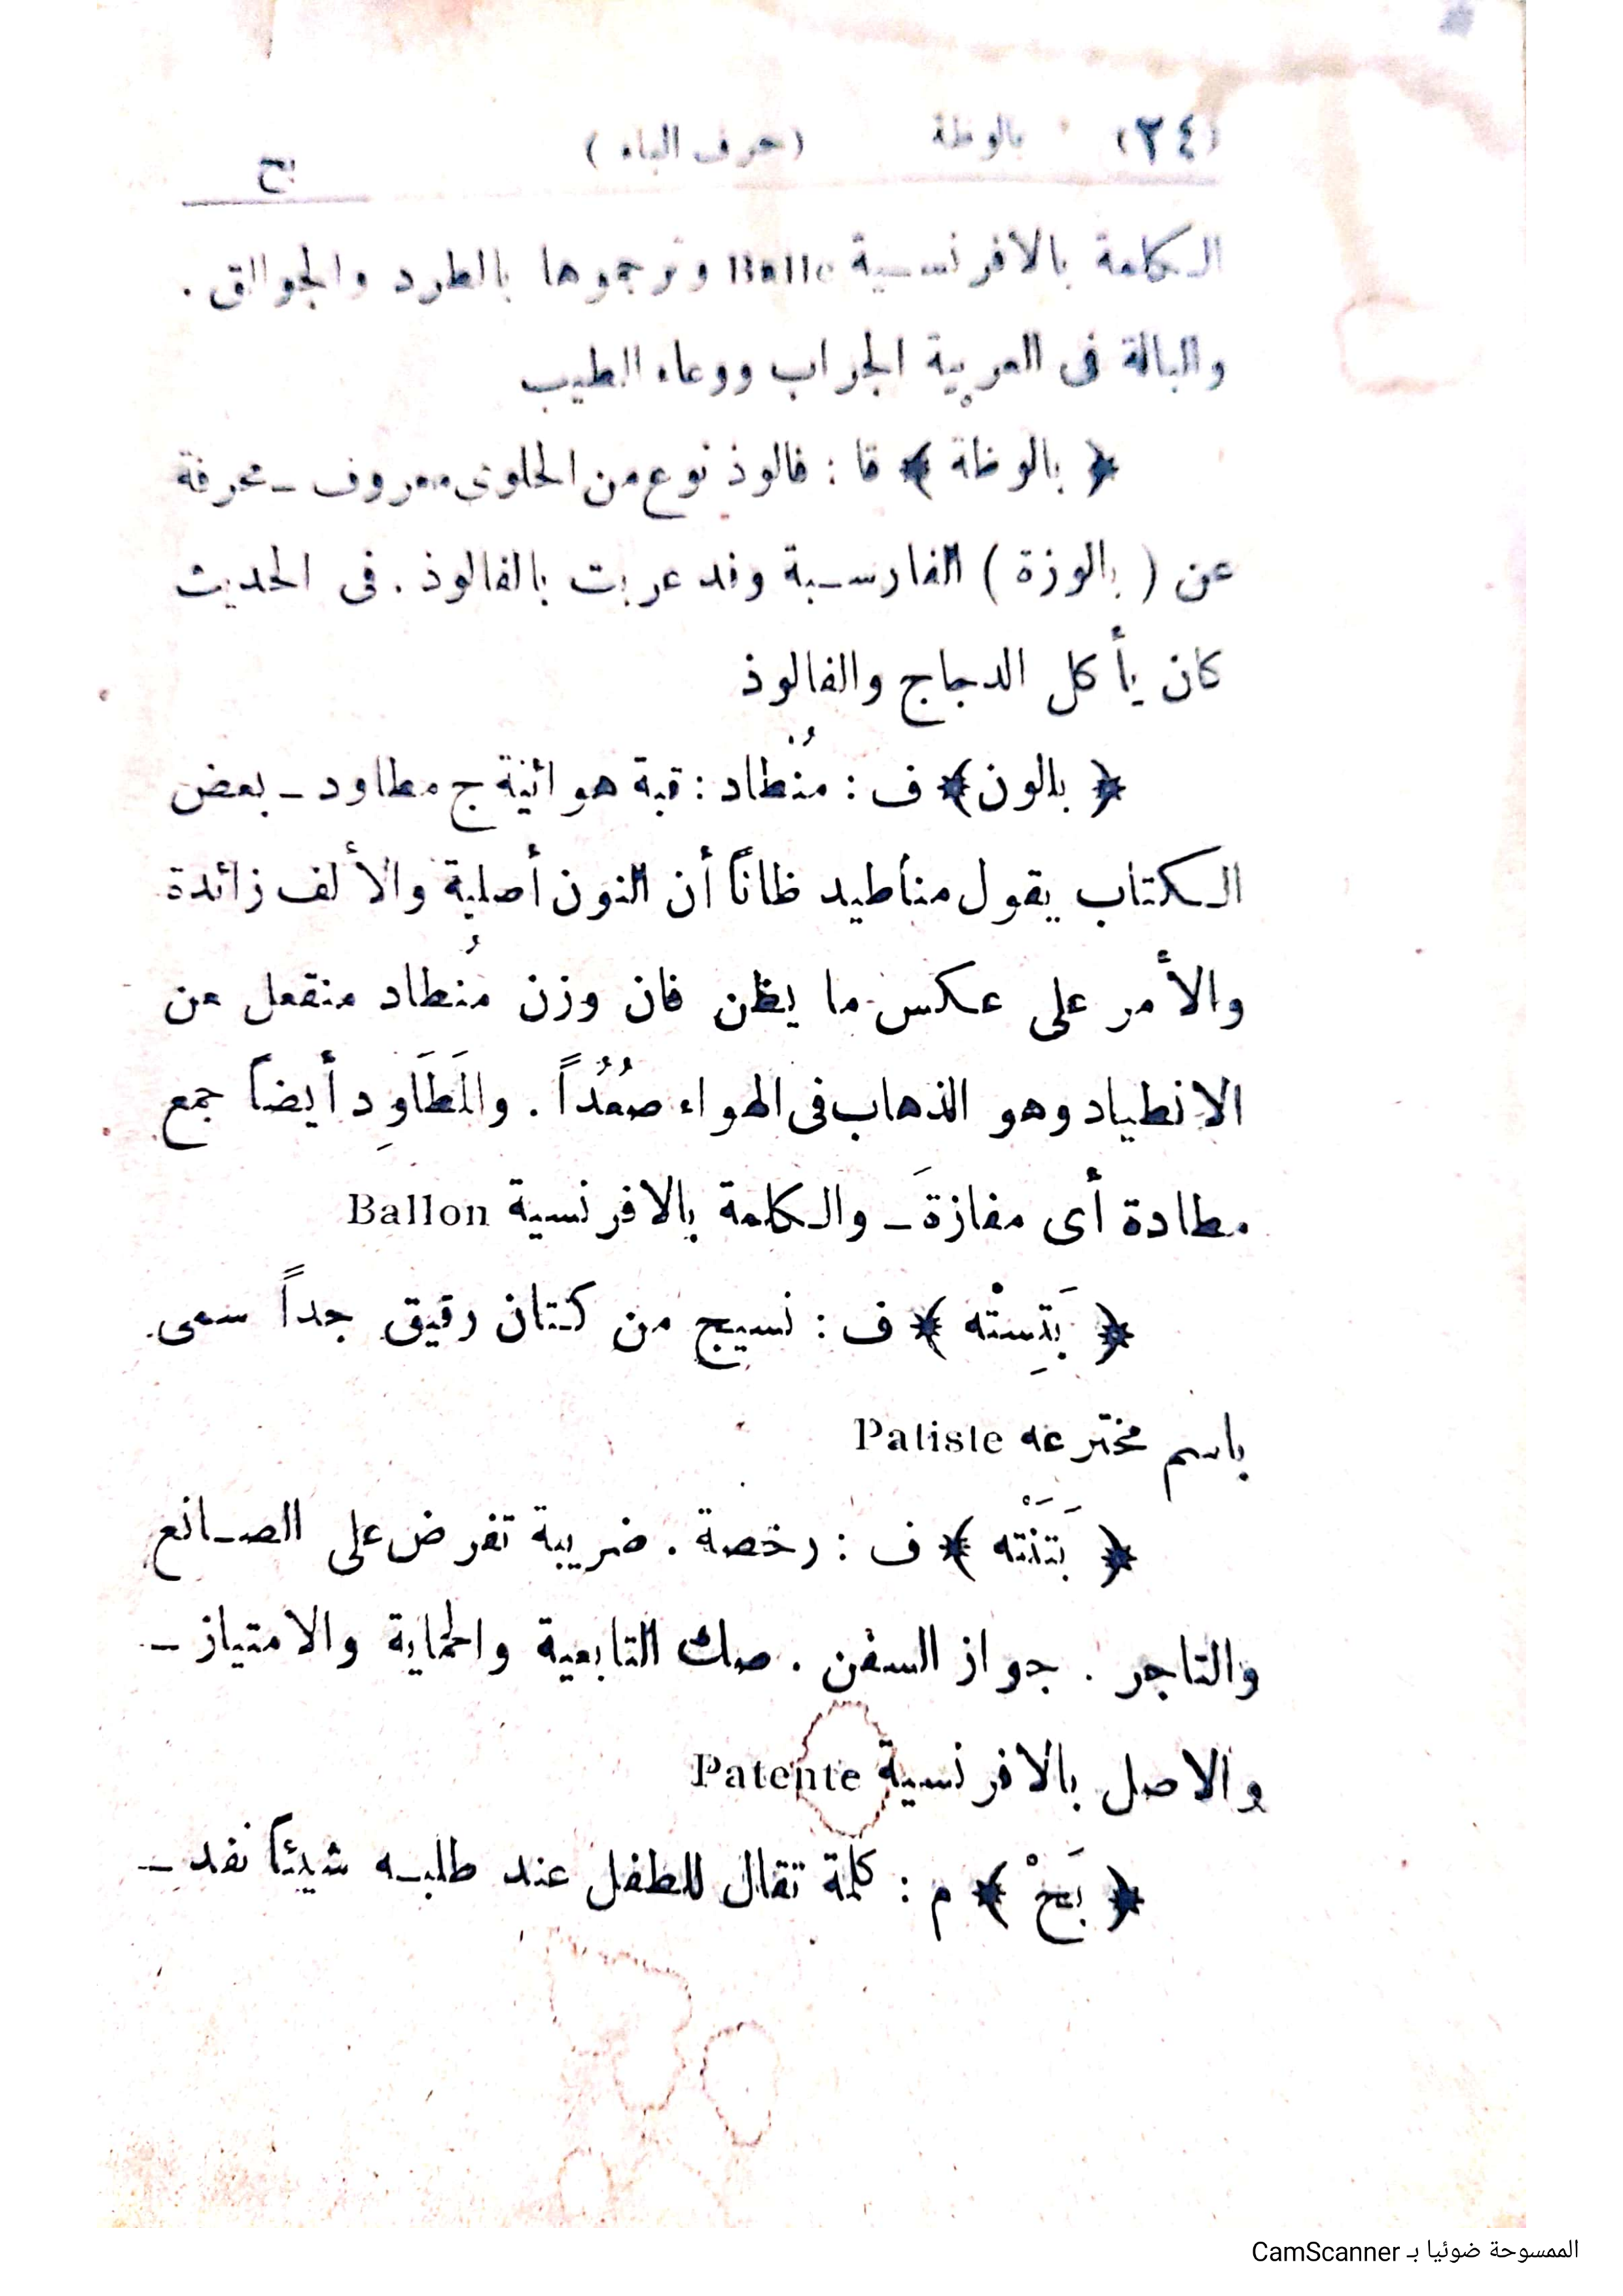 (٢٤) بالوظة (حرف الباء) بح
الكلمة بالافرنسية Balle وترجموها بالطرد والجوالق .
والبالة فى العربية الجراب ووعاء الطيب
﴿ بالوظة ﴾ فا : فالوذ نوع من الحلوى معروف ـ محرفة
عن ( بالوزة ) الفارسية وقد عربت بالفالوذ . فى الحديث
كان يأكل الدجاج والفالوذ
﴿ بالون ﴾ ف : مُنْطاد : قبة هوائية ج مطاود ـ بعض
الكتاب يقول مناطيد ظاناً أن النون أصلية والألف زائدة
والأمر على عكس ما يظن فان وزن مُنطاد منفعل من
الانطياد وهو الذهاب فى الهواء صُعُداً . والمَطَاوِد أيضاً جمع
مطادة أى مفازة ـ والكلمة بالافرنسية Ballon
﴿ بَتِسْته ﴾ ف : نسيج من كتان رقيق جداً سمى
باسم مخترعه Patiste
﴿ بَتَنْته ﴾ ف : رخصة . ضريبة تفرض على الصانع
والتاجر . جواز السفن . صك التابعية والحماية والامتياز ـ
والاصل بالافرنسية Patente
﴿ بَحْ ﴾ م : كلمة تقال للطفل عند طلبه شيئاً نفد ـ
الممسوحة ضوئيا بـ CamScanner